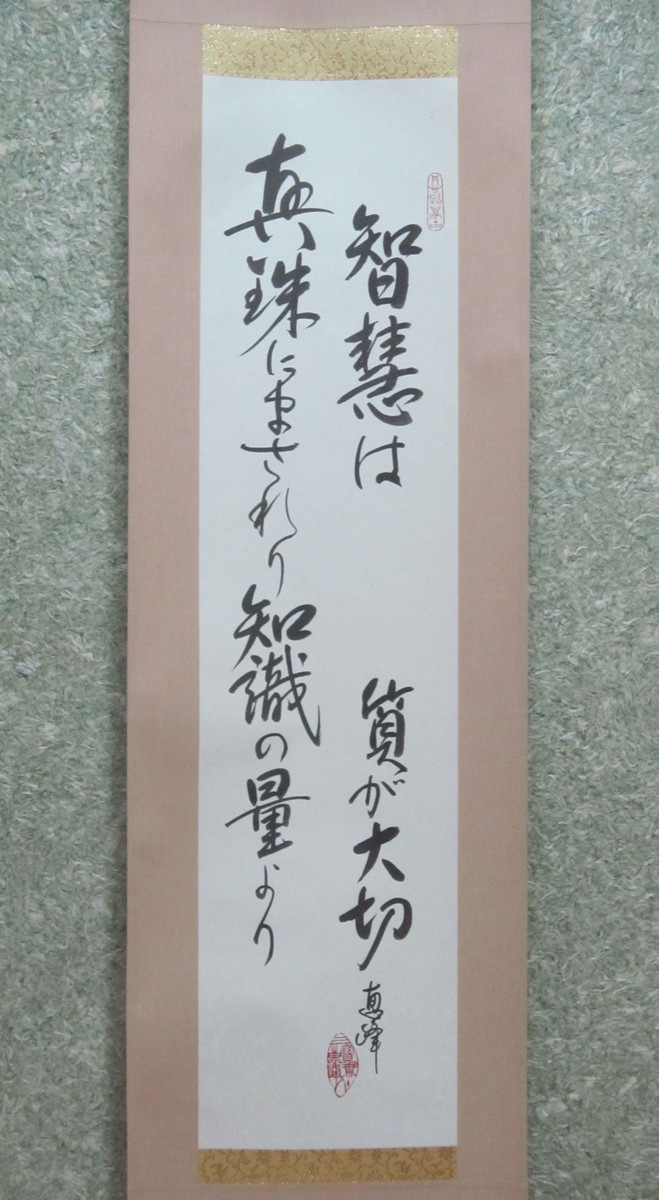 智慧は
真珠にまされり
知識の量より
質が大切
恵峰